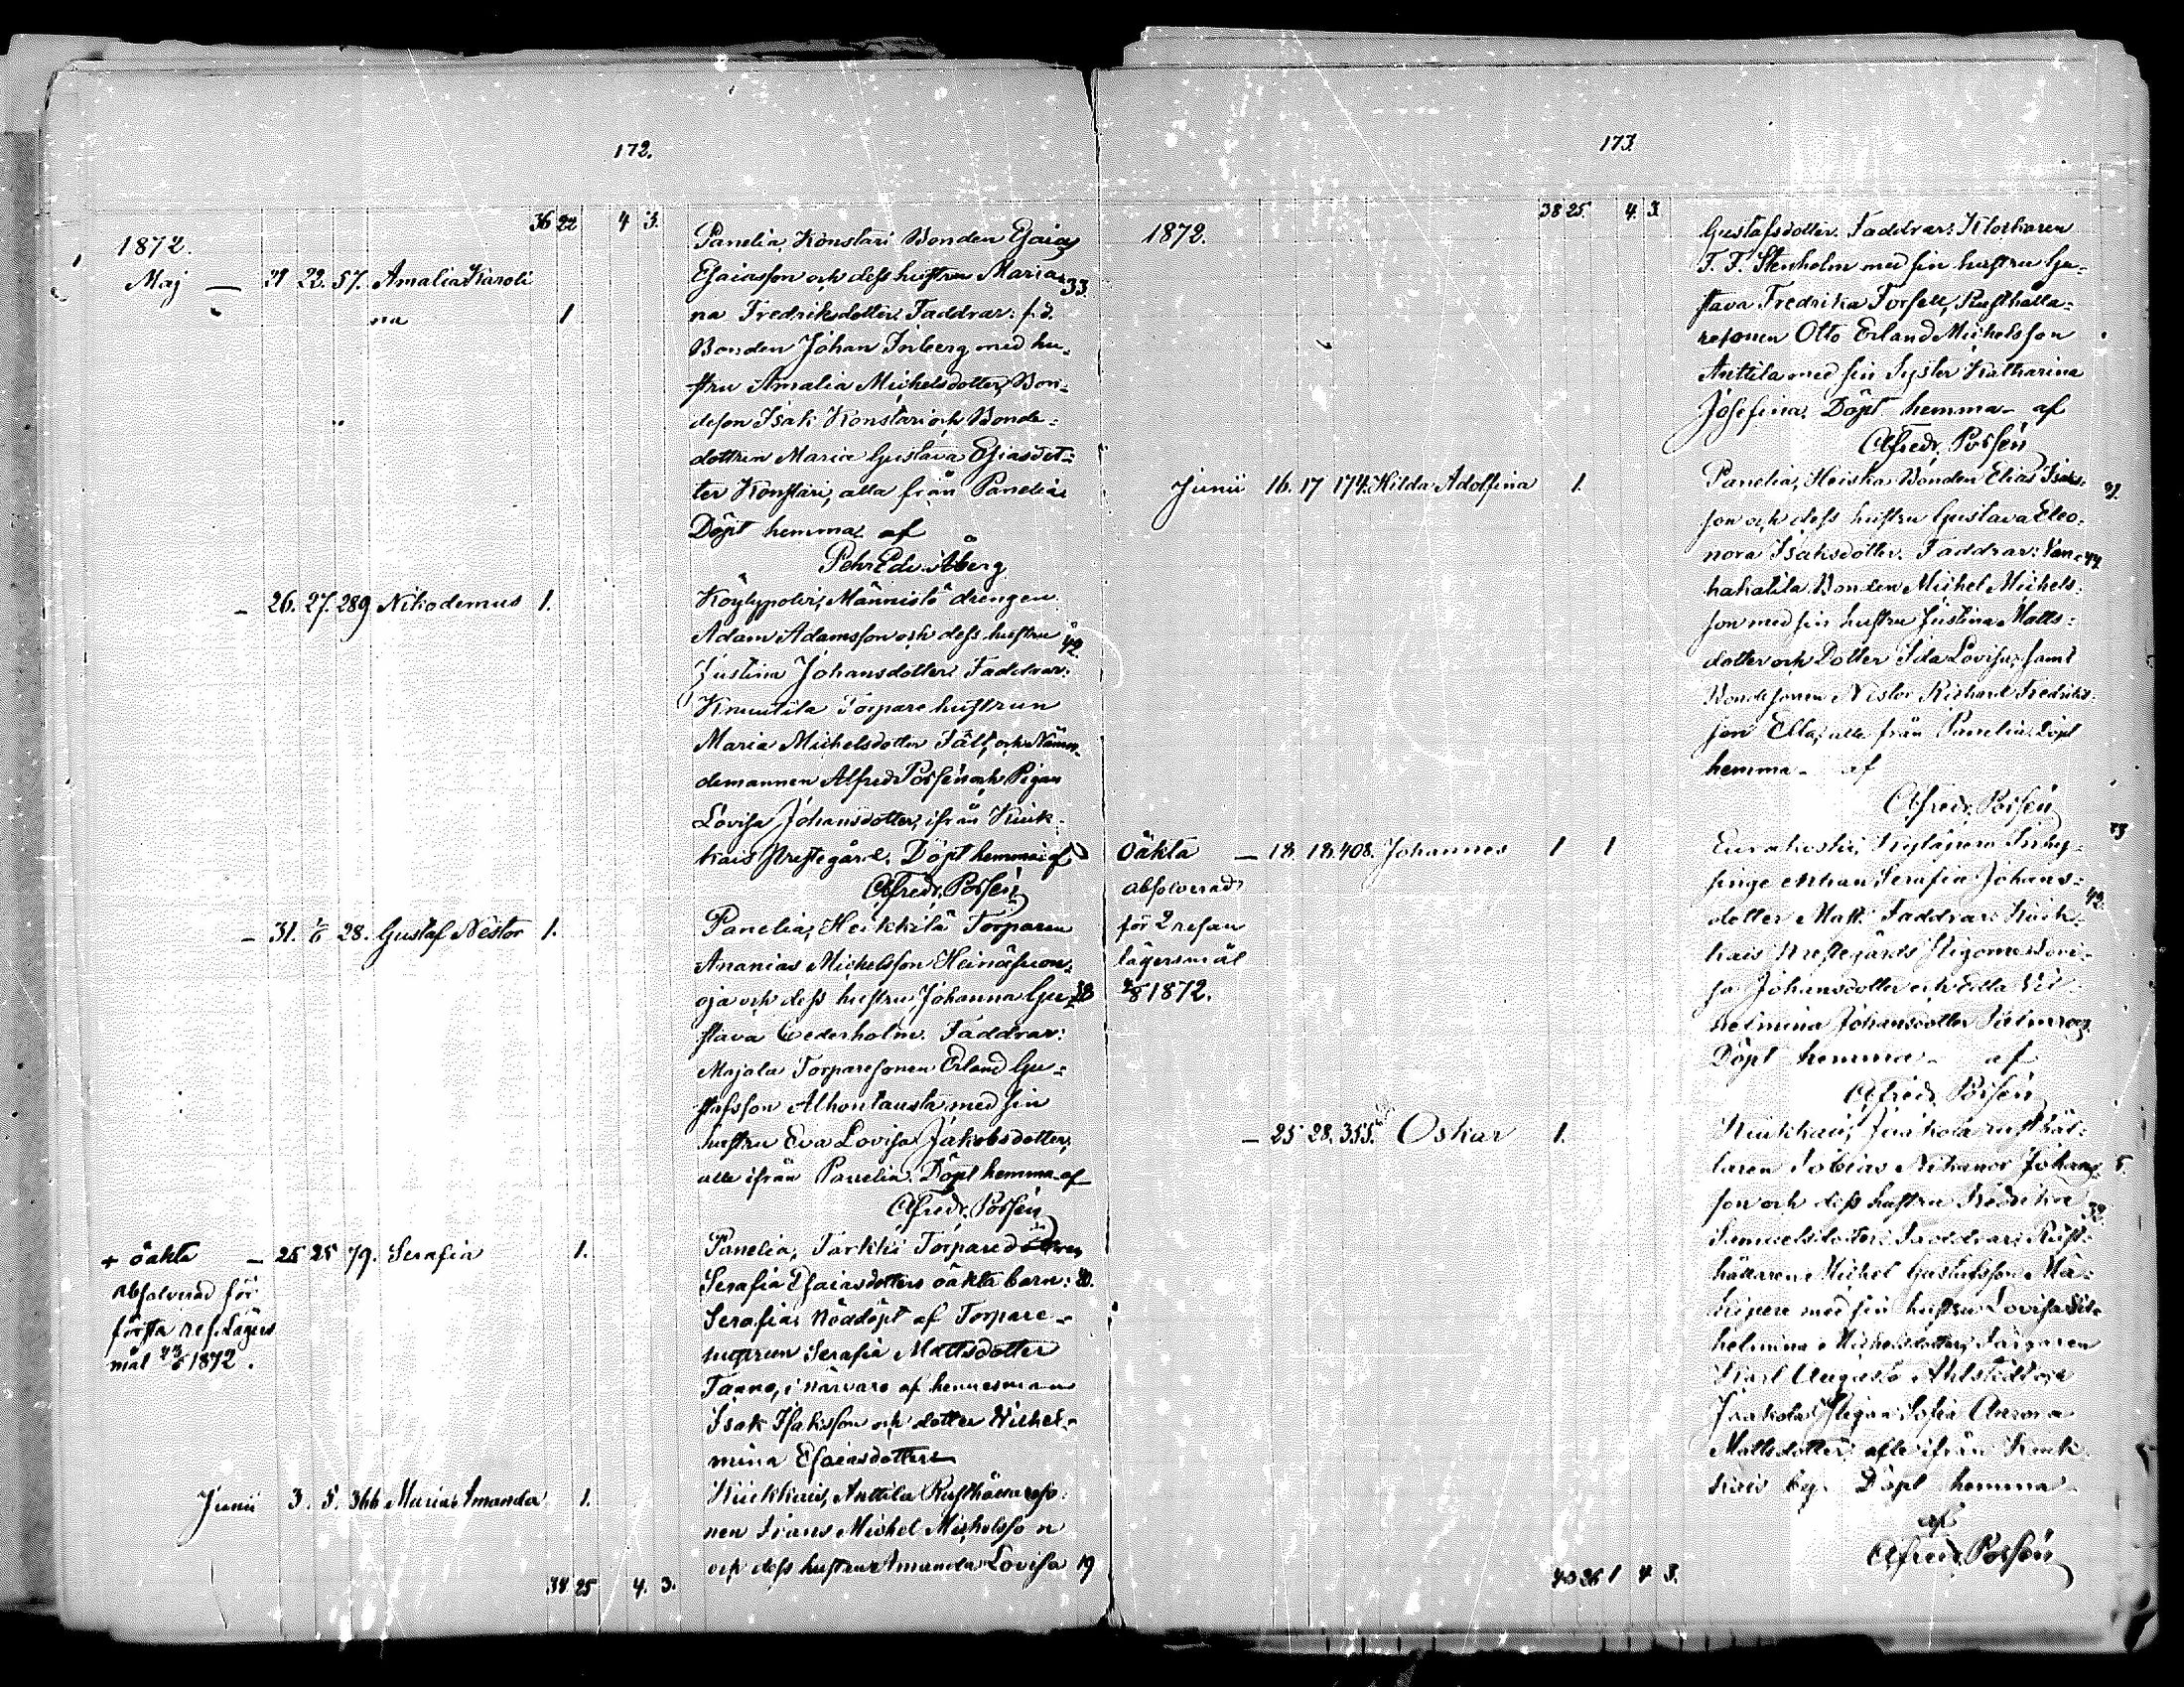 172.
36 22 4 3.
1872.
Maj — 21 23. 57. Amalia Karoli
na 1
Panelia, Konstari Bonden Esaias
Esaiasson och dess hustru Maria 33.
na Fredriksdotter. Faddrar: f.d.
Bonden Johan Inberg med hu-
stru Amalia Michelsdotter, Bon-
deson Isak Konstari och Bonde-
dottren Maria Gustava Esiasdot-
ter Konstari, alla från Panelia.
Döpt hemma af
Pehr Edv. Åberg
— 26. 27. 289 Nikodemus 1.
Köylypolvi, Männistö drengen
Adam Adamsson och dess hustru 42.
Justina Johansdotter. Faddrar:
Knuutila Torpare hustrun
Maria Michelsdotter Fält, och Näm-
demannen Alfred Possén och Pigan
Lovisa Johansdotter, ifrån Kiuk-
kais Prestegård. Döpt hemma af
Alfredr. Posén
— 31. 1/6 28. Gustaf Nestor 1.
Panelia, Heikkilä Torparen
Ananias Michelsson Heinäsuon-
oja och dess hustru Johanna Gu- 38
stava Cederholm. Faddrar:
Majala Torparesonen Erland Gu-
stafsson Alhontausta med sin
hustru Eva Lovisa Jakobsdotter,
alle ifrån Panelia. Döpt hemma af
Alfredr. Posén
+ oäkta — 25 25 79. Serafia 1.
absolverad för
första res. Lägers
mål 23/6 1872.
Panelia, Tarkki Torparedottren
Serafia Esaiasdotters oäkta barn: 20.
Serafia; Nöddöpt af Torpare-
hustrun Serafia Mattsdotter
Tanno, i närvaro af hennes man
Isak Isaksson och dotter Wilhel-
mina Esaiasdotter
Junii 3. 5. 366 Maria Amanda 1.
Kiukkais, Anttila Rusthållareso-
nen Frans Michel Michelsson
och dess hustru Amanda Lovisa 19
38 25 4. 3.
173.
38 25. 4. 3.
1872.
Gustafsdotter. Faddrar: Klockaren
F. F. Stenholm med sin hustru Gu-
stava Fredrika Forsell, Rusthålla-
resonen Otto Erland Michelsson
Anttila med sin Syster Katharina
Josefina. Döpt hemma af
Alfredr. Posén
Junii 16. 17 174. Hilda Adolfina 1.
Panelia, Heiska Bonden Elias Isaks-
son och dess hustru Gustava Eleo-
nora Isaksdotter. Faddrar: Van-
hakatila Bonden Michel Michels-
son med sin hustru Justina Matts-
dotter och Dotter Ida Lovisa, samt
Bondesonen Nestor Richard Fredriks-
son Ella, alle från Panelia. Döpt
hemma af
Alfredr. Posén
Oäkta — 18. 18. 408. Johannes 1 1
absolverad
för 2 resan
lägersmål
1872.
Johans-
dotter Matt. Faddrar: Kiuk-
kais Prestegårds Pigorne Lovi-
sa Johansdotter och Edla Vil-
helmina Johansdotter Palmroos.
Döpt hemma af
Alfredr. Posén
— 25 28. 355. Oskar 1.
Kiukkais, Jaakola rusthål-
laren Tobias Nikanor Johans- 5.
son och dess hustru Fredrika
Samuelsdotter. Faddrar: Rust-
hållaren Michel Gustafsson Mä-
kipere med sin hustru Lovisa Vil-
helmina Michelsdotter, Färgaren
Karl August Ahlstedt och
Jaakola Pigan Sofia Aurora
Mattsdotter, alle ifrån Kiuk-
kais by. Döpt hemma
af
Alfredr. Posén
40 26 1 4 3.